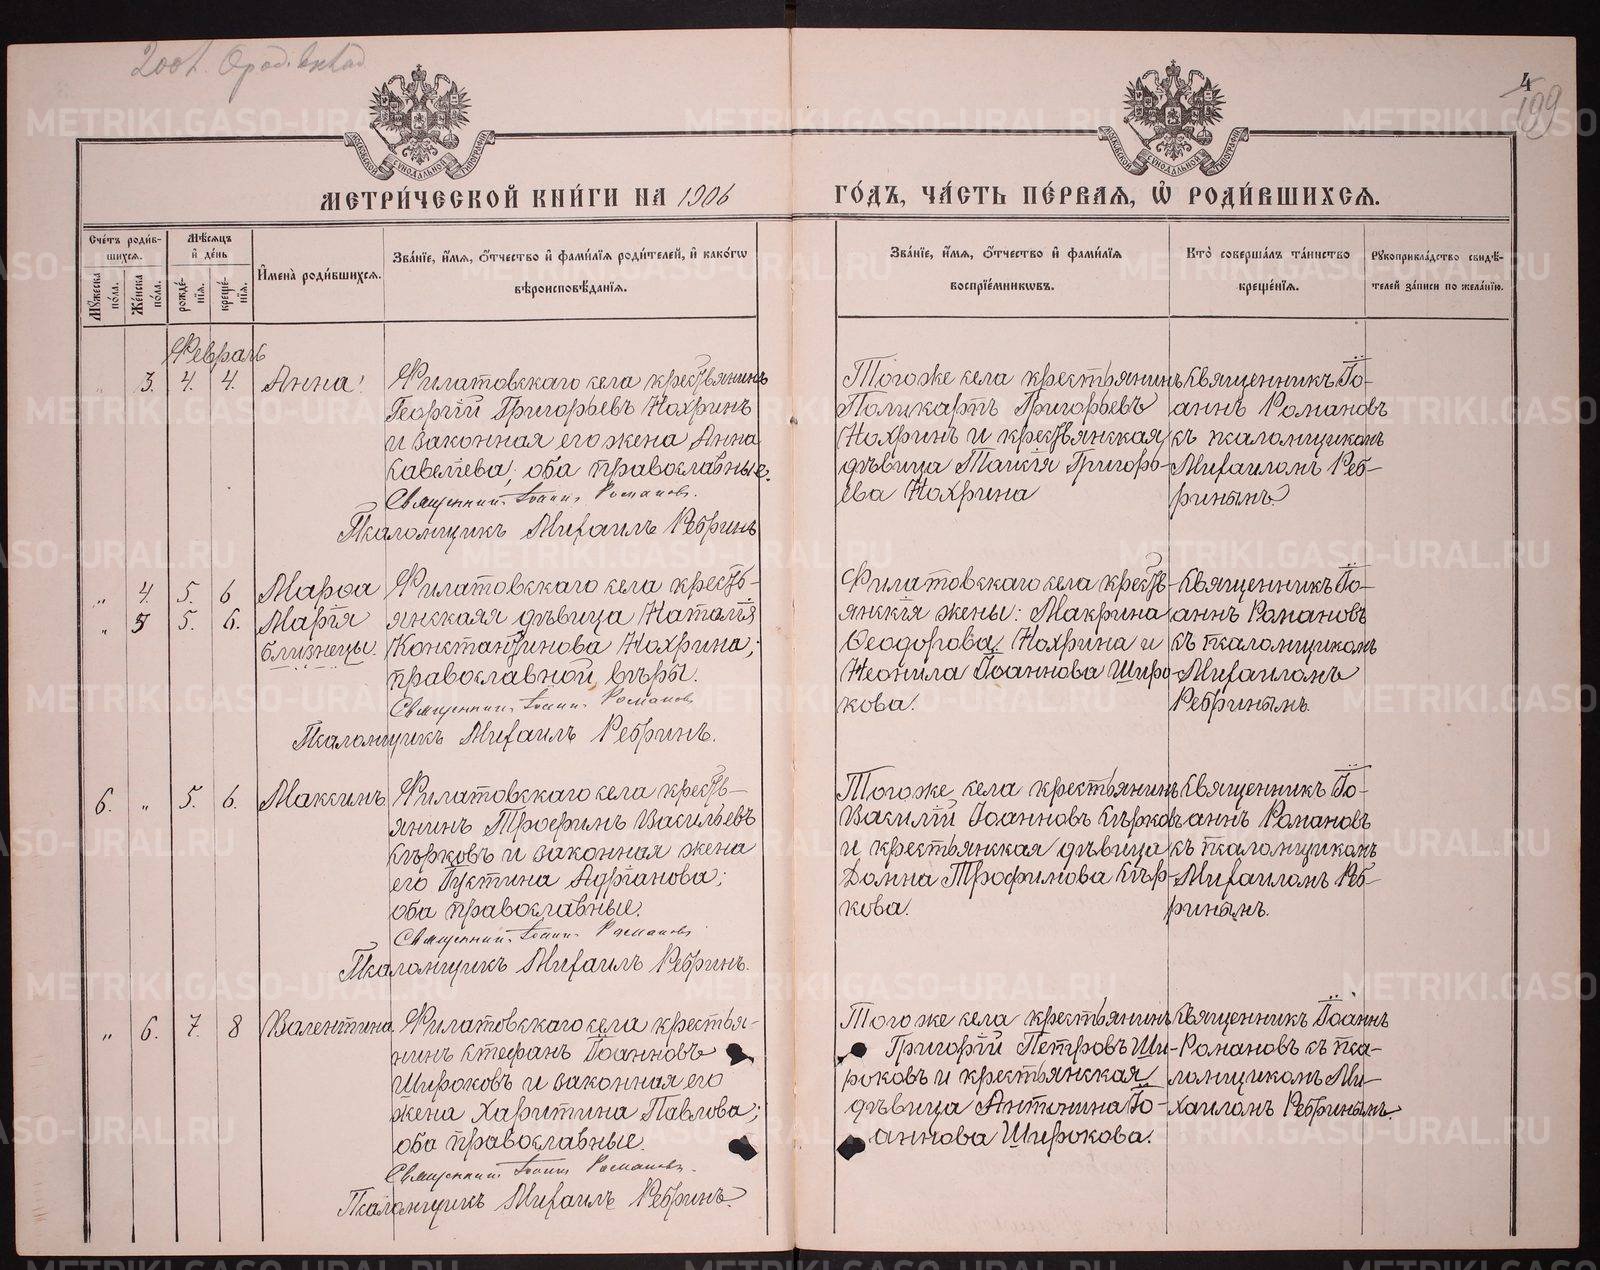 METRIKI.GASO-URAL.RU
199
4
МОСКОВСКОЙ СѴНОДАЛЬНОЙ ТИПОГРАФІИ
МОСКОВСКОЙ СѴНОДАЛЬНОЙ ТИПОГРАФІИ
МЕТРИ́ЧЕСКОЙ КНИ́ГИ НА 1906
ГО́ДЪ, ЧА́СТЬ ПЕ́РВАЯ, Ѡ҆ РОДИ́ВШИХСЯ.
Сче́тъ роди́в-
шихся.
Мꙋ́жеска по́ла.
Же́нска по́ла.
Мѣ́сяцъ
и҆ де́нь
рожде́-
нїя.
креще́-
нїя.
И҆мена̀ роди́вшихся.
Зва́нїе, и҆́мя, ѻ҆́тчество и҆ фами́лїя роди́телей, и҆ како́гѡ
вѣроисповѣ́данїя.
Зва́нїе, и҆́мя, ѻ҆́тчество и҆ фами́лїя
воспрїе́мникѡвъ.
Кто̀ соверша́лъ та́инство
креще́нїя.
Рꙋкоприкла́дство свидѣ́-
телей за́писи по жела́нїю.
Февраль
„ 3. 4. 4. Анна.
Филатовскаго села крестьянинъ
Георгій Григорьевъ Нохринъ
и законная его жена Анна
Савелiева; оба православные.
Священникъ Іоаннъ Романовъ.
Псаломщикъ Михаилъ Ребринъ
Того же села крестьянинъ
Поликарпъ Григорьевъ
Нохринъ и крестьянская
дѣвица Таисія Григорь-
ева Нохрина
Священникъ Іо-
аннъ Романовъ
съ псаломщикомъ
Михаиломъ Реб-
ринымъ
„ 4. 5. 6 Марѳа
„ 5 5. 6. Марія
близнецы.
Филатовскаго села кресть-
янская дѣвица Наталія
Константинова Нохрина;
православной вѣры.
Священникъ Іоаннъ Романовъ
Псаломщикъ Михаилъ Ребринъ.
Филатовскаго села кресть-
янскія жены: Макрина
Ѳеодорова Нохрина и
Неонила Іоаннова Широ-
кова.
Священникъ Іо-
аннъ Романовъ
съ псаломщикомъ
Михаиломъ
Ребринымъ.
6. „ 5. 6. Максимъ
Филатовскаго села кресть-
янинъ Трофимъ Васильевъ
Сѣрковъ и законная жена
его Іустина Адріанова;
оба православные.
Священникъ Іоаннъ Романовъ
Псаломщикъ Михаилъ Ребринъ.
Того же села крестьянинъ
Василій Іоанновъ Сѣрковъ
и крестьянская дѣвица
Домна Трофимова Сѣр-
кова.
Священникъ Іо-
аннъ Романовъ
съ псаломщикомъ
Михаиломъ Реб-
ринымъ.
„ 6. 7. 8 Валентина
Филатовскаго села крестья-
нинъ Стефанъ Іоанновъ
Широковъ и законная его
жена Харитина Павлова;
оба православные.
Священникъ Іоаннъ Романовъ.
Псаломщикъ Михаилъ Ребринъ.
Того же села крестьянинъ
Григорій Петровъ Ши-
роковъ и крестьянская
дѣвица Антонина Іо-
аннова Широкова.
Священникъ Іоаннъ
Романовъ съ пса-
ломщикомъ Ми-
хаиломъ Ребринымъ.